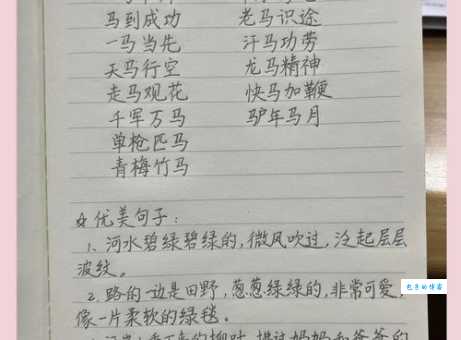 马到成功 老马识途
一马当先 汗马功劳
天马行空 龙马精神
走马观花 快马加鞭
千军万马 驴年马月
单枪匹马
青梅竹马
☆优美句子:
1、河水碧绿碧绿的,微风吹过,泛起层层
波纹。
2.路的一边是田野,葱葱绿绿的,非常可爱,
像一片柔软的绿毯。